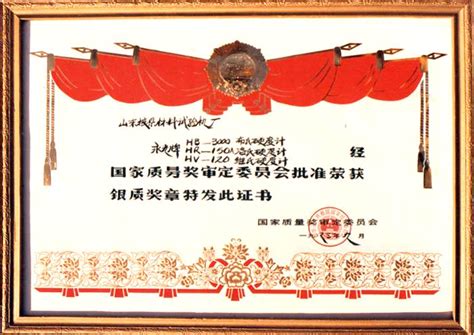 山东掖县材料试验机厂
HB-3000 布氏硬度计
牌 HR-150A 洛氏硬度计 经
HV-120 维氏硬度计
国家质量奖审定委员会批准荣获
银质奖章特发此证书
国家质量奖审定委员会
一九八 年九月